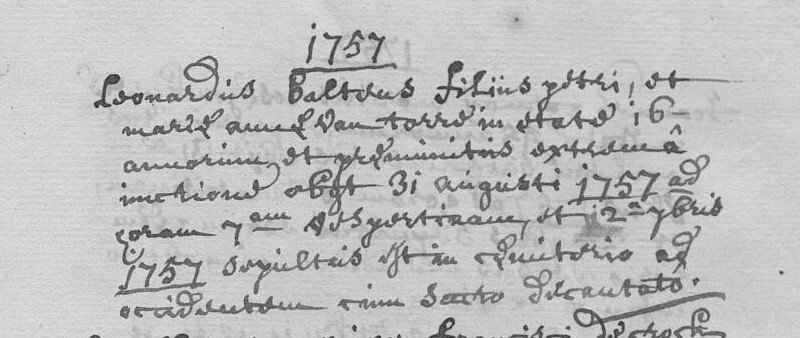 1757
Leonardus Baltens filius petri, et
mariæ annæ Van torre in etate 16
annorum, et præmunitus extremâ
unctione obijt 31 augusti 1757 ad
horam 7am Vespertinam, et 2a 7bris
1757 sepultus est in cæmiterio ad
occidentem cum Sacro decantato.
Francisci De